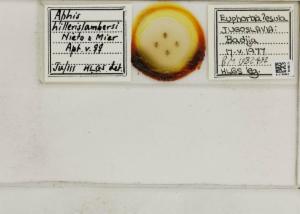 Aphis
hillerislambersi
Nieto & Mier
Apt. v. 99
HLGS det.
Euphorbia esula
JUGOSLAVIA:
Badija
17.v.1977
HLGS leg.